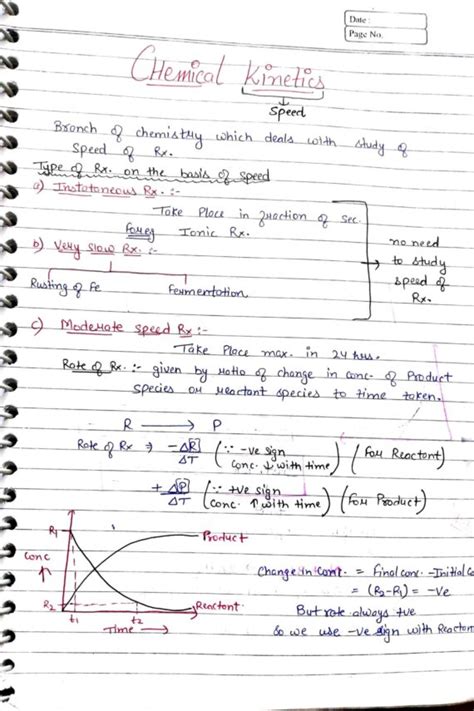 Date :
Page No.
CHemical Kinetics
Speed
Branch of chemistry which deals with study of
Speed of Rx.
Type of Rx. on the basis of speed
a) Instatoneous Rx. :-
Take Place in fraction of sec.
Ionic Rx.
b) Very slow Rx. :-
Rusting of Fe Fermentation
no need
to study
speed of
Rx.
c) Moderate speed Rx :-
Take Place max. in 24 hrs.
Rate of Rx. :- given by ratio of change in conc. of Product
species or reactant species to time taken.
R → P
Rate of Rx ⇒ -Δ[R]/ΔT (∵ -ve sign conc. ↓ with time) (For Reactant)
+Δ[P]/ΔT (∵ +ve sign conc. ↑ with time) (For Product)
R1
Conc ↑
R2
t1 t2
Time →
Product
Reactant
Change in Conc. = final conc. - Initial Co
= (R2-R1) = -ve
But rate always +ve
So we use -ve sign with Reactan